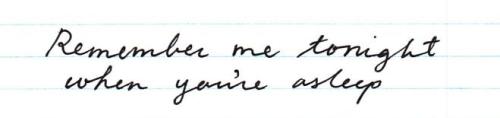 Remember me tonight
when you're asleep